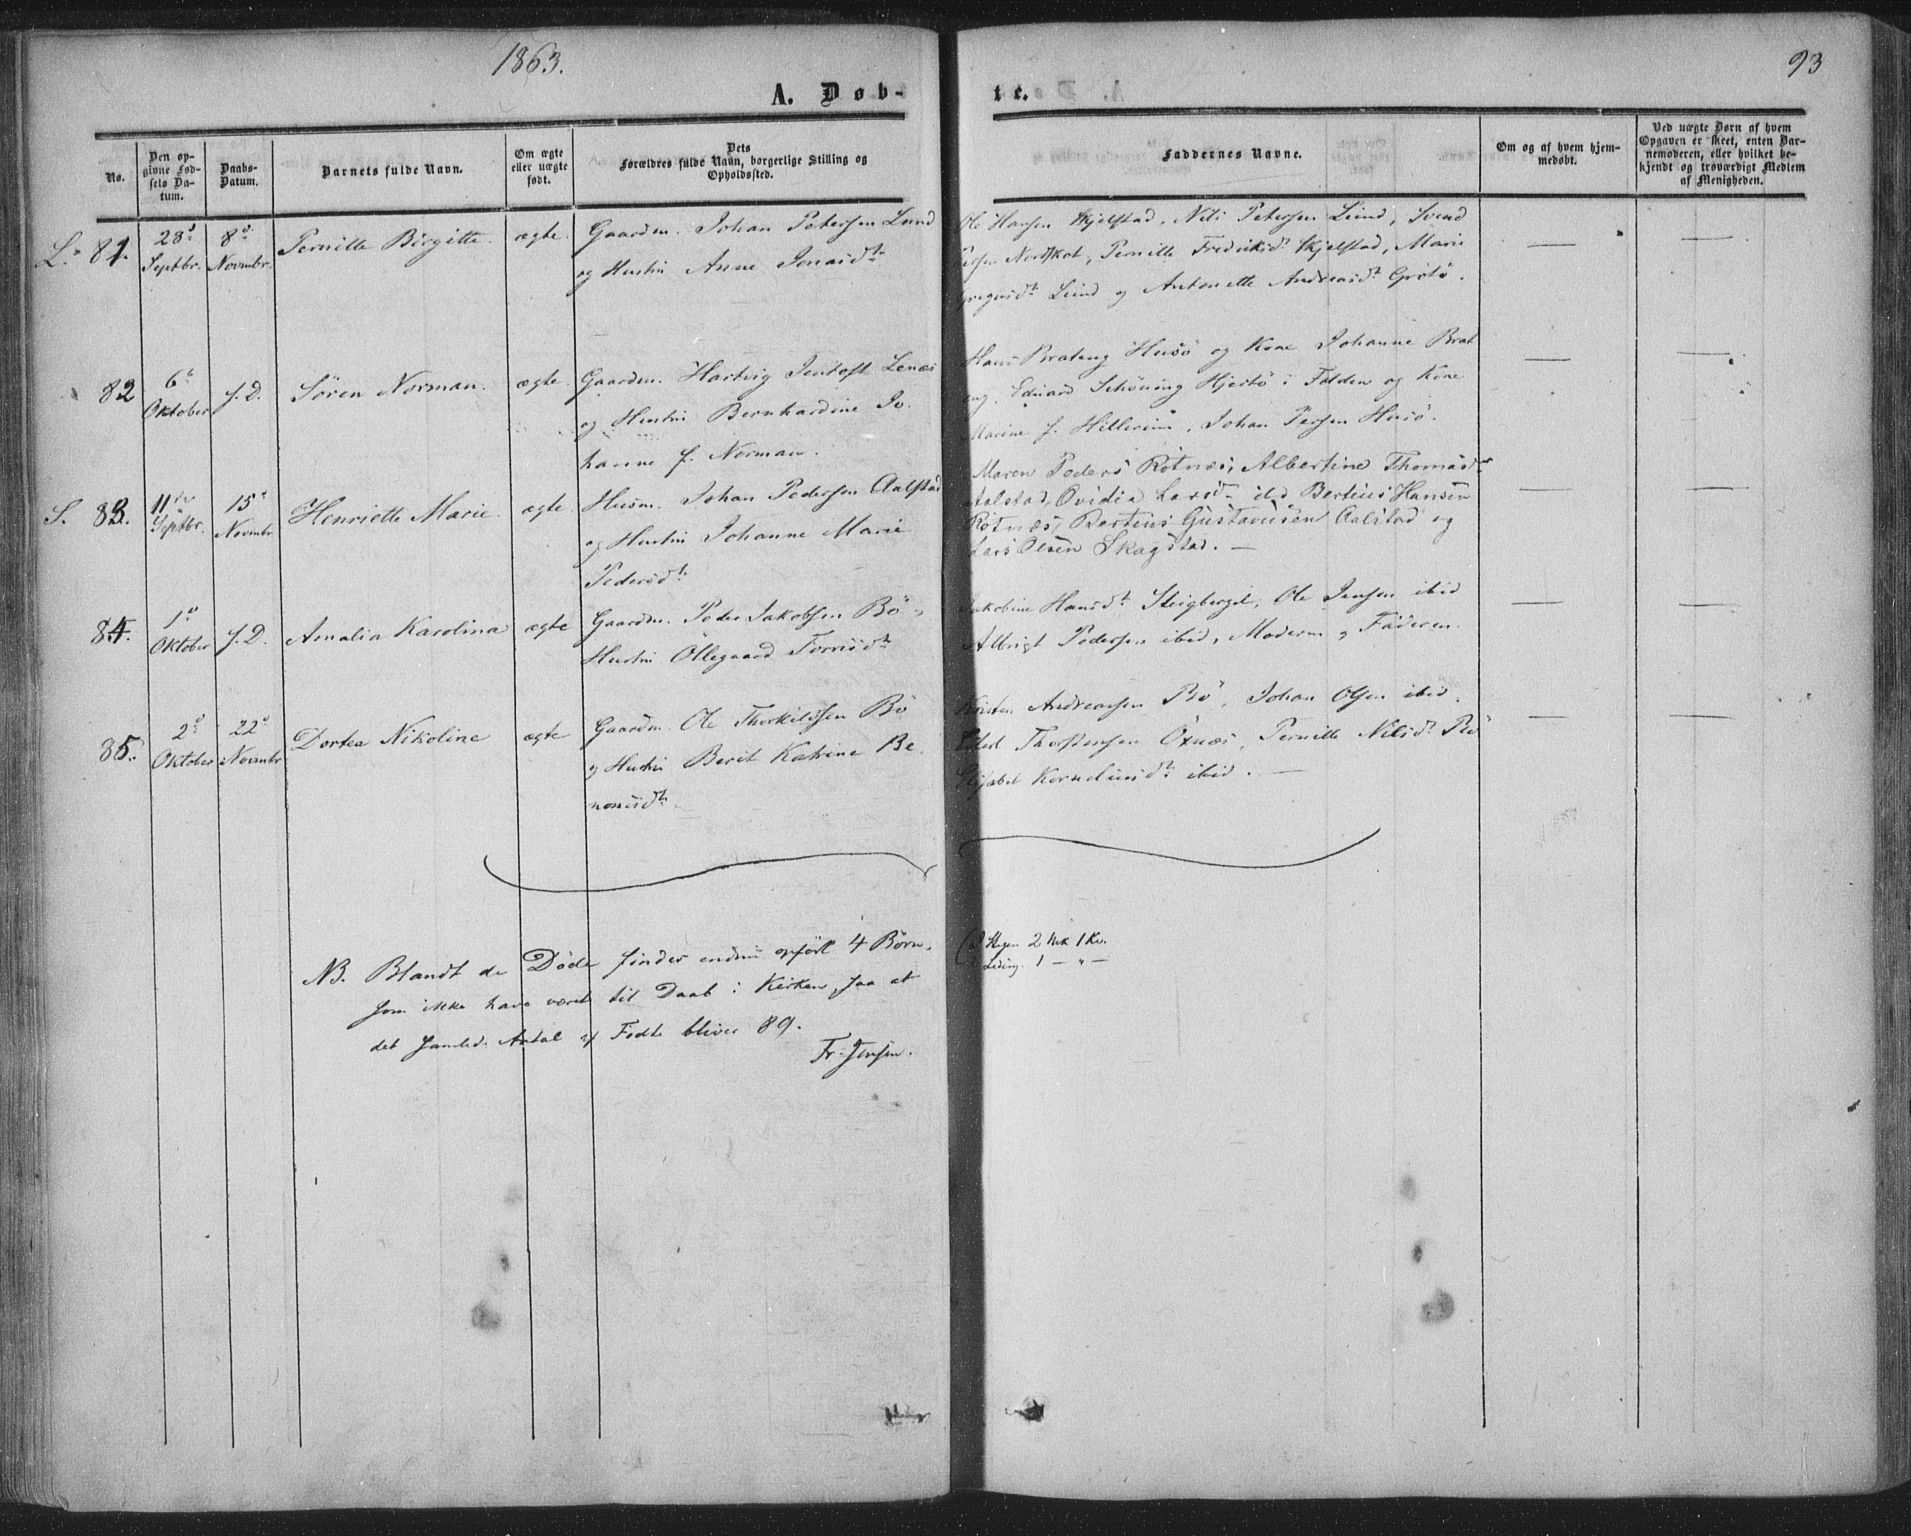 1863.
93
A. Døb-
te.
No.
Den op-
givne Fød-
sels Da-
tum.
Daabs-
Datum.
Barnets fulde Navn.
Om ægte
eller uægte
født.
Dets
Forældres fulde Navn, borgerlige Stilling og
Opholdssted.
Faddernes Navne.
Om og af hvem hjem-
medøbt.
Ved uægte Børn af hvem
Opgaven er skeet, enten Bar-
nemoderen, eller hvilket be-
kjendt og troværdigt Medlem
af Menigheden.
L. 81.
28d
Septbr.
8d
Novmbr.
Pernille Birgitte.
ægte.
Gaardm. Johan Petersen Lund
og Hustru Anne Jonasdtr
Ole Hansen Skjelstad, Nils Petersen Lund, Svend
Nordskot, Pernille Fredriksdtr Skjelstad, Marie
Lund og Antonette Andreasdtr Grøtö.
82
6d
Oktober
s. D.
Sören Norman.
ægte.
Gaardm. Hartvig Jentoft Lenæs
og Hustru Bernhardine Jo-
hanne f. Norman.
Hans Brateng Husö og Kone Johanne Brat
eng, Eduard Schöning Hjertö i Folden og Kone
Marine f. Johan Persen Husö.
S. 83.
11te
Septbr.
15d
Novmbr
Henriette Marie
ægte
Husm. Johan Pedersen Aalstad
og Hustru Johanne Marie
Pedersdtr
Maren Peders Rötnæs, Albertine Thomasdtr
Aalstad, Ovidia Larsdtr ibd Bertius Hansen
Rötnæs, Bertius Gustavusen Aalstad og
Lars Olsen Skagstad. —
84.
1d
Oktober
s. D.
Amalia Karolina
ægte
Gaardm. Peder Jakobsen Bö
Hustru Ollegaard Torrisdtr
Jakobine Hansdtr Steigberget, Ole Jensen ibid
Albrigt Pedersen ibid, Moderen og Faderen.
85.
2d
Oktober
22d
Novmbr
Dortea Nikoline
ægte
Gaardm. Ole Thorkilssen Bö
og Hustru Berit Katrine Be-
nonisdtr
Kristen Andreassen Bö, Johan Olsen ibid.
Thorstensen Öxnæs, Pernille Nilsdtr Bö
Elisabet Korneliusdtr ibid. —
NB. Blandt de Döde findes endnu opfört 4 Börn,
som ikke have været til Daab i Kirken, saa at
det samled. Antal af Födte bliver 89.
Fr. Jensen.
2 Mk 1 Kv.
Leding. 1 — " —